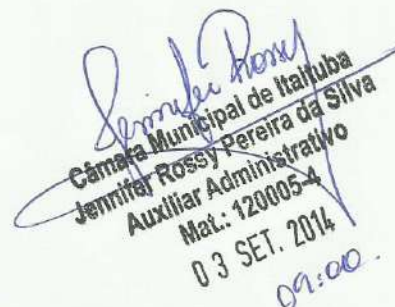 Jennifer Rossy
Câmara Municipal de Itaituba
Jennifer Rossy Pereira da Silva
Auxiliar Administrativo
Mat.: 120005-4
03 SET. 2014
09:00.